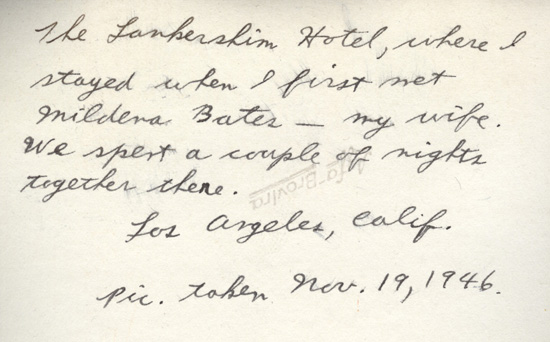 The Lankershim Hotel, where I
stayed when I first met
Mildena Bates — my wife.
We spent a couple of nights
together there.
Agfa-Brovira
Los Angeles, Calif.
Pic. taken Nov. 19, 1946.